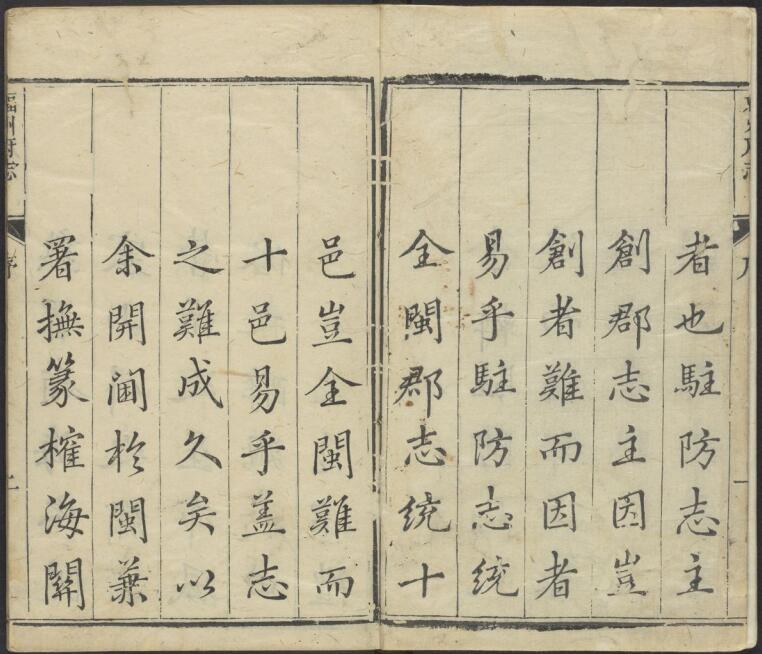 者也駐防志主
創郡志主因豈
創者難而因者
易乎駐防志統
全閩郡志統十
邑豈全閩難而
十邑易乎盖志
之難成久矣以
余開閫於閩兼
署撫篆榷海關
福州府志
序